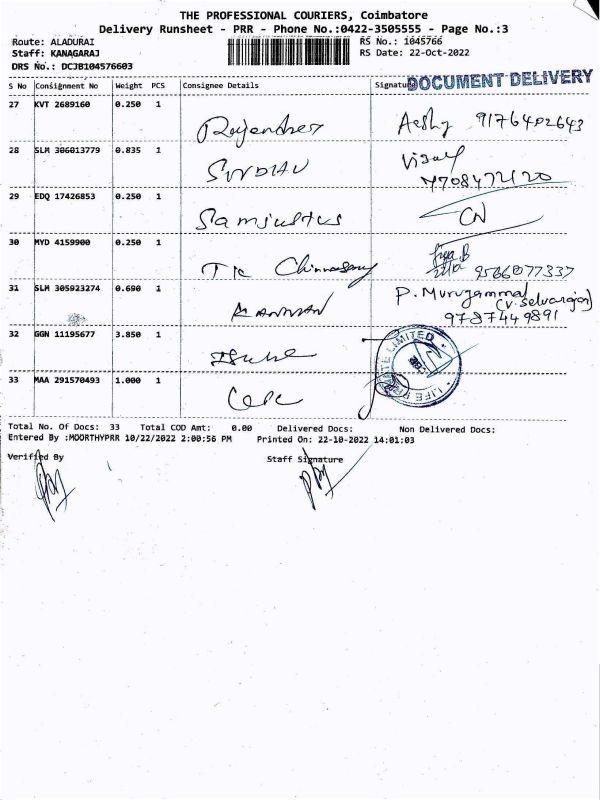 THE PROFESSIONAL COURIERS, Coimbatore
Delivery Runsheet - PRR - Phone No.:0422-3505555 - Page No.:3
Route: ALADURAI RS No.: 1045766
Staff: KANAGARAJ RS Date: 22-Oct-2022
DRS No.: DCJB104576603
DOCUMENT DELIVERY
S No Consignment No Weight PCS Consignee Details Signature
27 KVT 2689160 0.250 1
Rajender 9176402643
28 SLM 306013779 0.835 1
29 EDQ 17426853 0.250 1
CN
30 MYD 4159900 0.250 1
9566077337
31 SLM 305923274 0.690 1
P. Murugammal
(v. selvarajan)
KANNAN 9787449891
32 GGN 11195677 3.850 1
LIMITED
33 MAA 291570493 1.000 1
Total No. Of Docs: 33 Total COD Amt: 0.00 Delivered Docs: Non Delivered Docs:
Entered By :MOORTHYPRR 10/22/2022 2:00:56 PM Printed On: 22-10-2022 14:01:03
Verified By Staff Signature